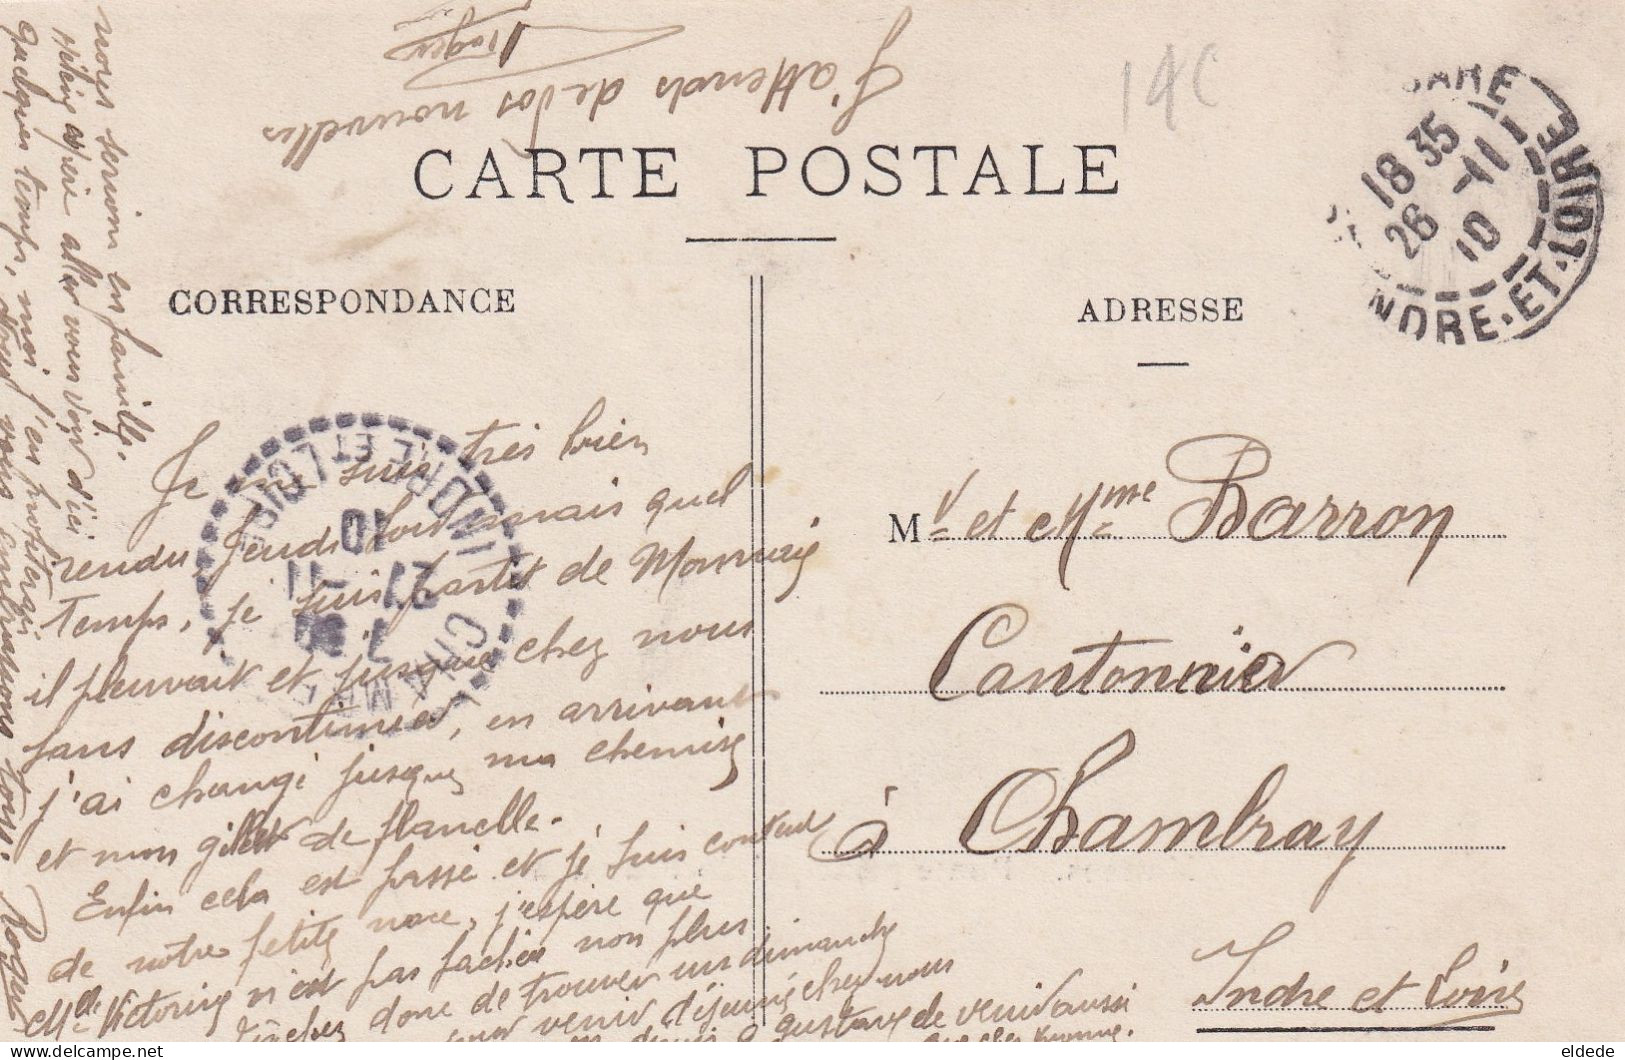 J'attends de vos nouvelles
Roger
14C
CARTE POSTALE
GARE
18 35
26 -11
10
INDRE-ET-LOIRE
CORRESPONDANCE
ADRESSE
Je me suis très bien
rendu Jeudi soir mais quel
temps, je suis partit de Monnaie
il pleuvait et jusque chez nous
sans discontinuer, en arrivant
j'ai changé jusque ma chemise
et mon gilet de flanelle.
Enfin cela est passé et je suis content
de notre petite noce, j'espère que
Mlle Victorine n'est pas fachée non plus
Tâchez donc de trouver un dimanche
pour venir déjeuner chez nous
Gustave de venir aussi
que chez Yvonne.
nous serions en famille.
aller vous voir d'ici
quelques temps, moi j'en profiterai
nous vous embrassons tous.
Roger
CHAMBRAY
INDRE ET LOIRE
27 -11
10
Mr et Mme Barron
Cantonnier
à Chambray
Indre et Loire
eldede